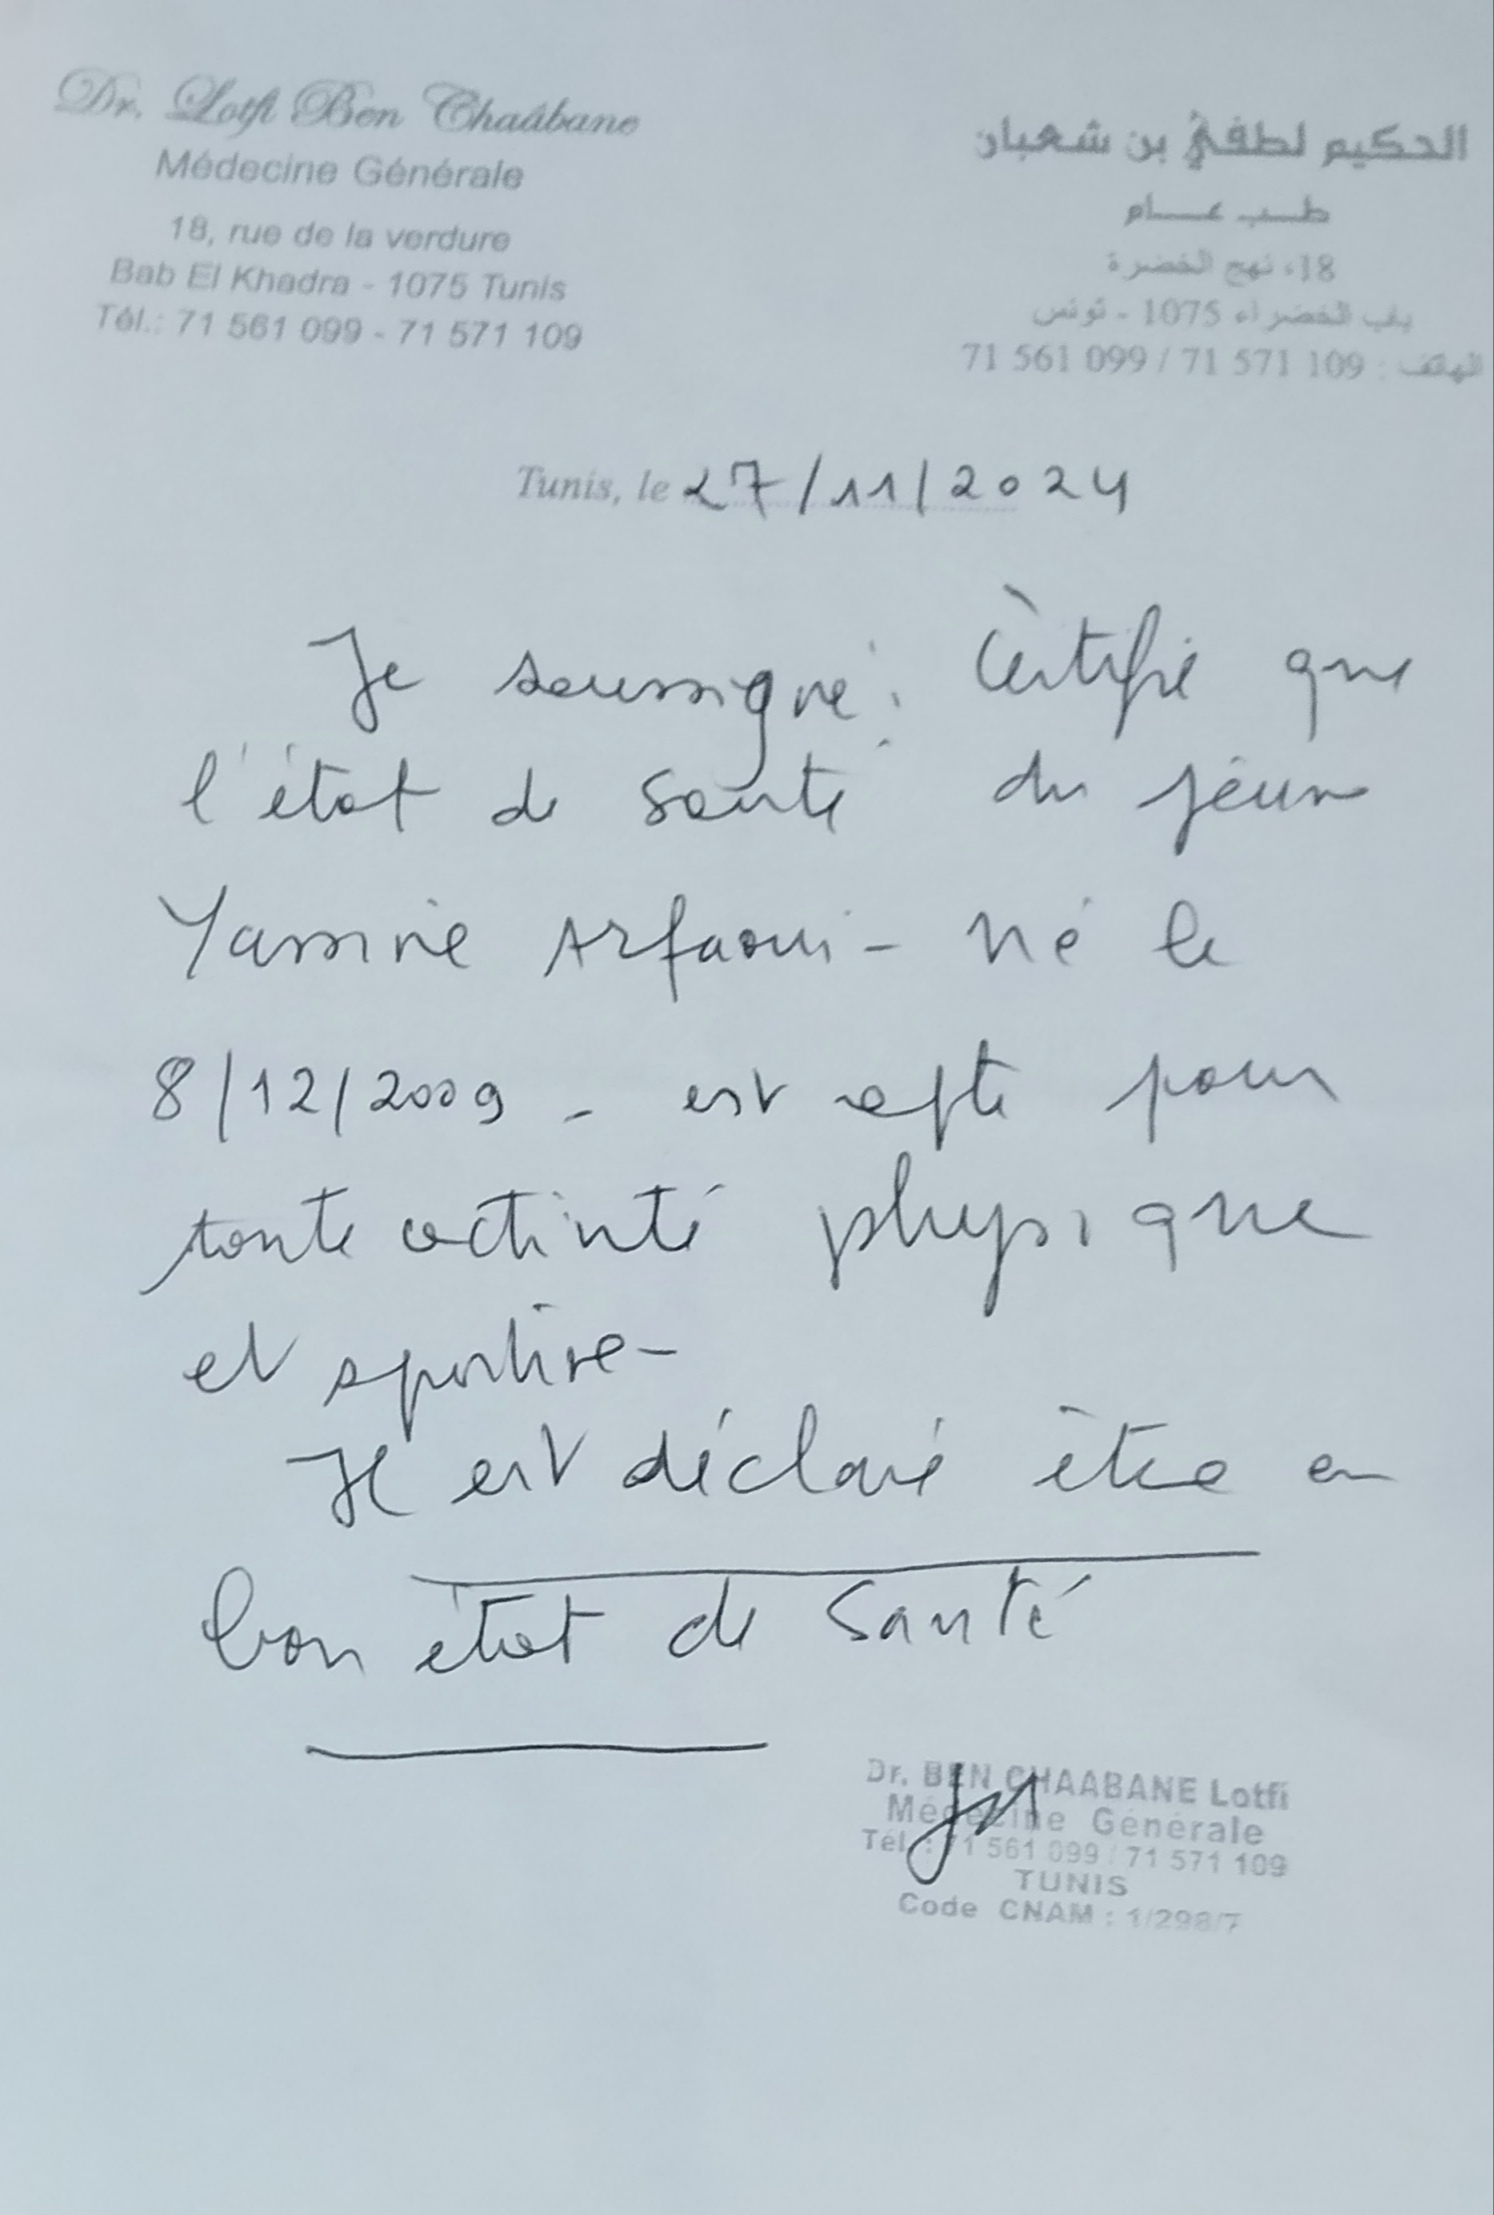 Dr. Lotfi Ben Chaâbane
Médecine Générale
18, rue de la verdure
Bab El Khadra - 1075 Tunis
Tél.: 71 561 099 - 71 571 109
الحكيم لطفي بن شعبان
طب عام
18، نهج الخضرة
باب الخضراء 1075 - تونس
الهاتف : 71 561 099 / 71 571 109
Tunis, le 27/11/2024
Je soussigné: Certifie que
l'état de santé du jeune
Yassine Arfaoui - né le
8/12/2009 - est apte pour
toute activité physique
et sportive -
Il est déclaré être en
bon état de santé
Dr. BEN CHAABANE Lotfi
Médecine Générale
Tél. : 71 561 099 / 71 571 109
TUNIS
Code CNAM : 1/298/7